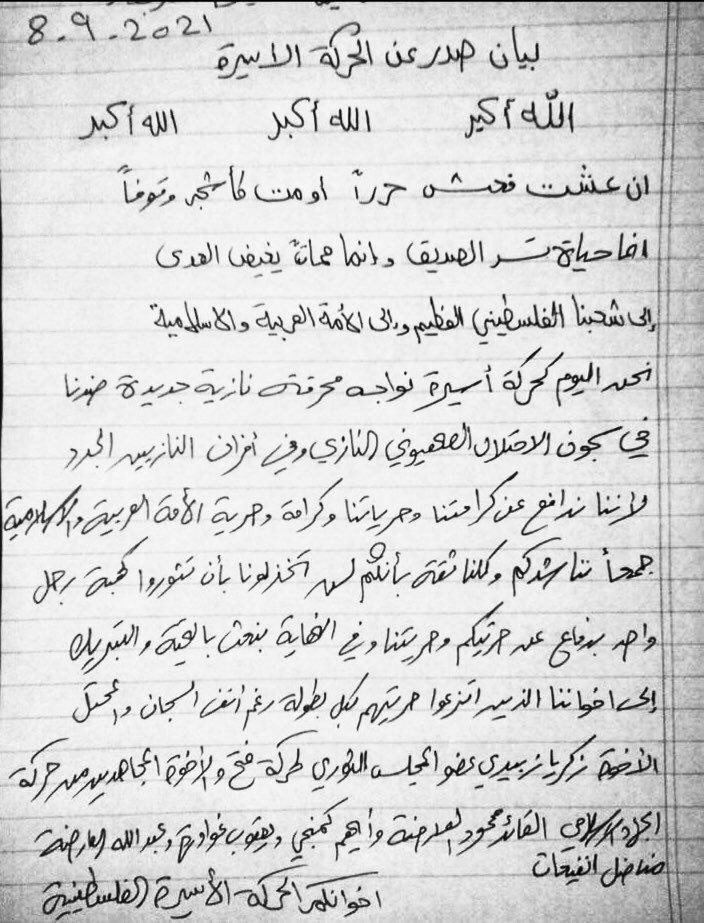 8-9-2021
بيان صدر عن الحركة الاسيرة
الله أكبر الله أكبر الله أكبر
ان عشت فعش حرراً او مت كأشجر وقوفاً
اما حياة تسر الصديق وإنما مماتً يغيض العدى
إلى شعبنا الفلسطيني العظيم وإلى الأمة العربية والاسلامية
نحن اليوم كحركة أسيرة نواجه محرقة نازية جديدة ضدنا
في سجون الاحتلال الصهيوني النازي وفي أفران النازيين الجدد
لإننا ندافع عن كرامتنا وحرياتنا وكرامة وحرية الأمة العربية والإسلامية
جمعأ نناشدكم وكلنا ثقة بأنكم لن تخذلونا بأن تثوروا كهبة رجل
واحد بدفاع عن حرتيكم وحريتنا وفي النهاية نبعث بالتحية والتبريك
إلى اخواننا الذين انتزعوا حريتهم بكل بطولة رغم انف السجان والمحتل
الأخوة زكريا زبيدي عضو المجلس الثوري لحركة فتح والأخوة المجاهدين من حركة
الجهاد الإسلامي القائد محمود العارضة وأيهم كممجي ويعقوب غوادرة وعبدالله العارضة
مناضل انفيعات
اخوانكم الحركة الأسيرة الفلسطينية